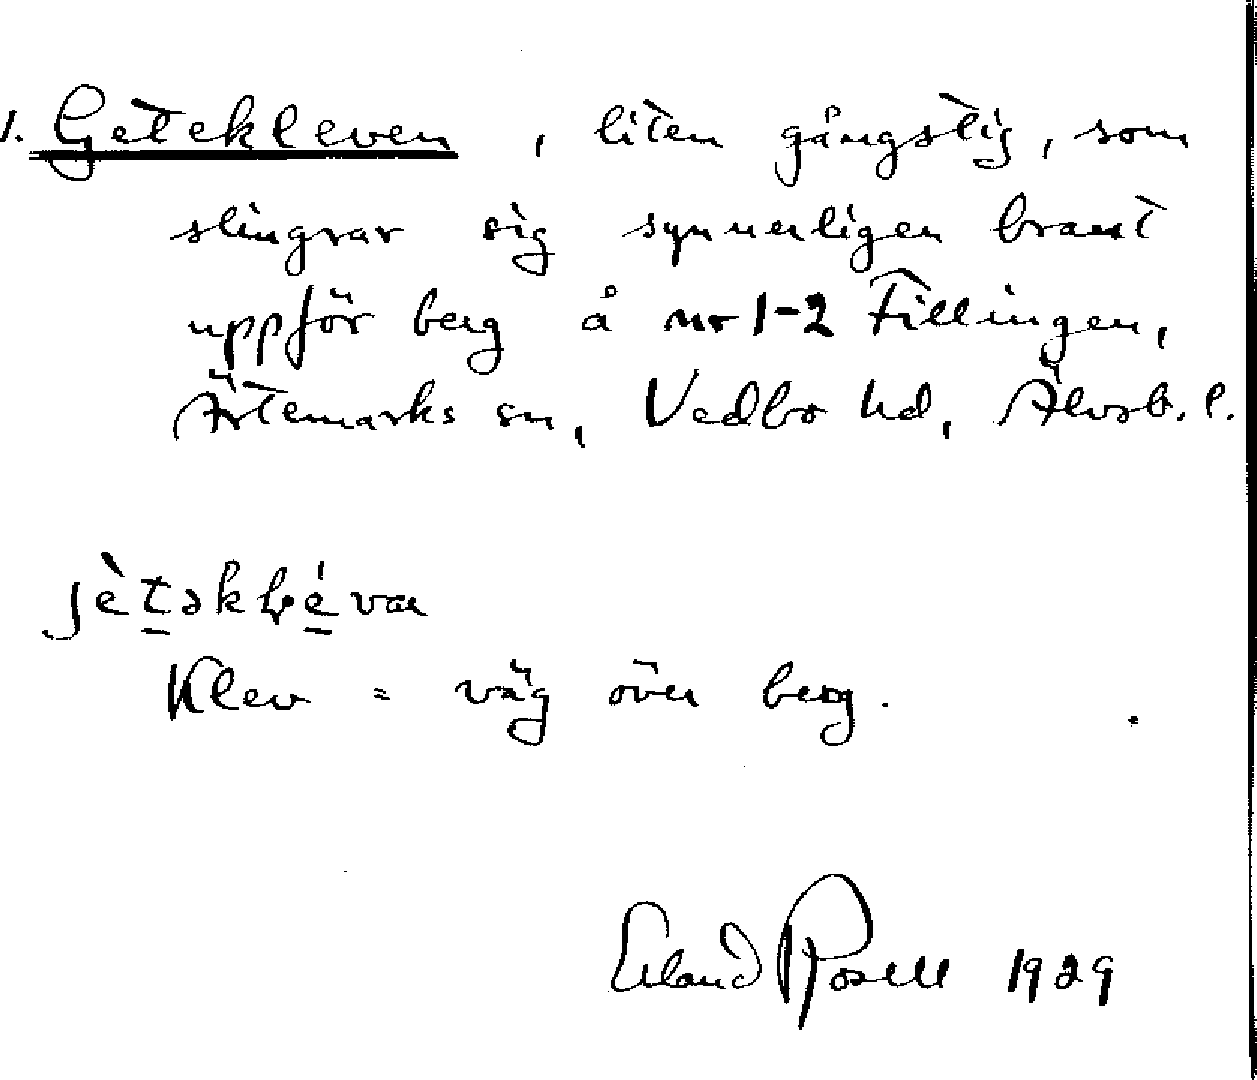 1. Getekleven, liten gångstig, som
slingrar sig synnerligen brant
uppför berg å nr 1-2 Fillingen,
Ärtemarks sn, Vedbo hd, Älvsb. l.
jètəkLé van
Klev = väg över berg.
Erland Rosell 1929